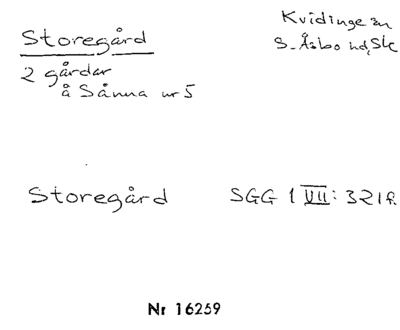 Storegård
Kvidinge sn
S. Åsbo hd, Sk
2 gårdar
å Sånna nr 5
Storegård SGG 1 VII: 321 f.
Nr 16259